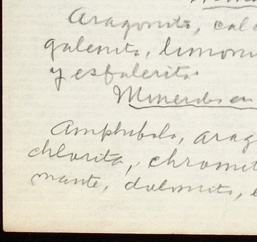 Aragonito, cal
galenito, limoni
y esfalerito
Minerales en
Amphibolo, arag
chlorita, chromit
mante, dolomito, e